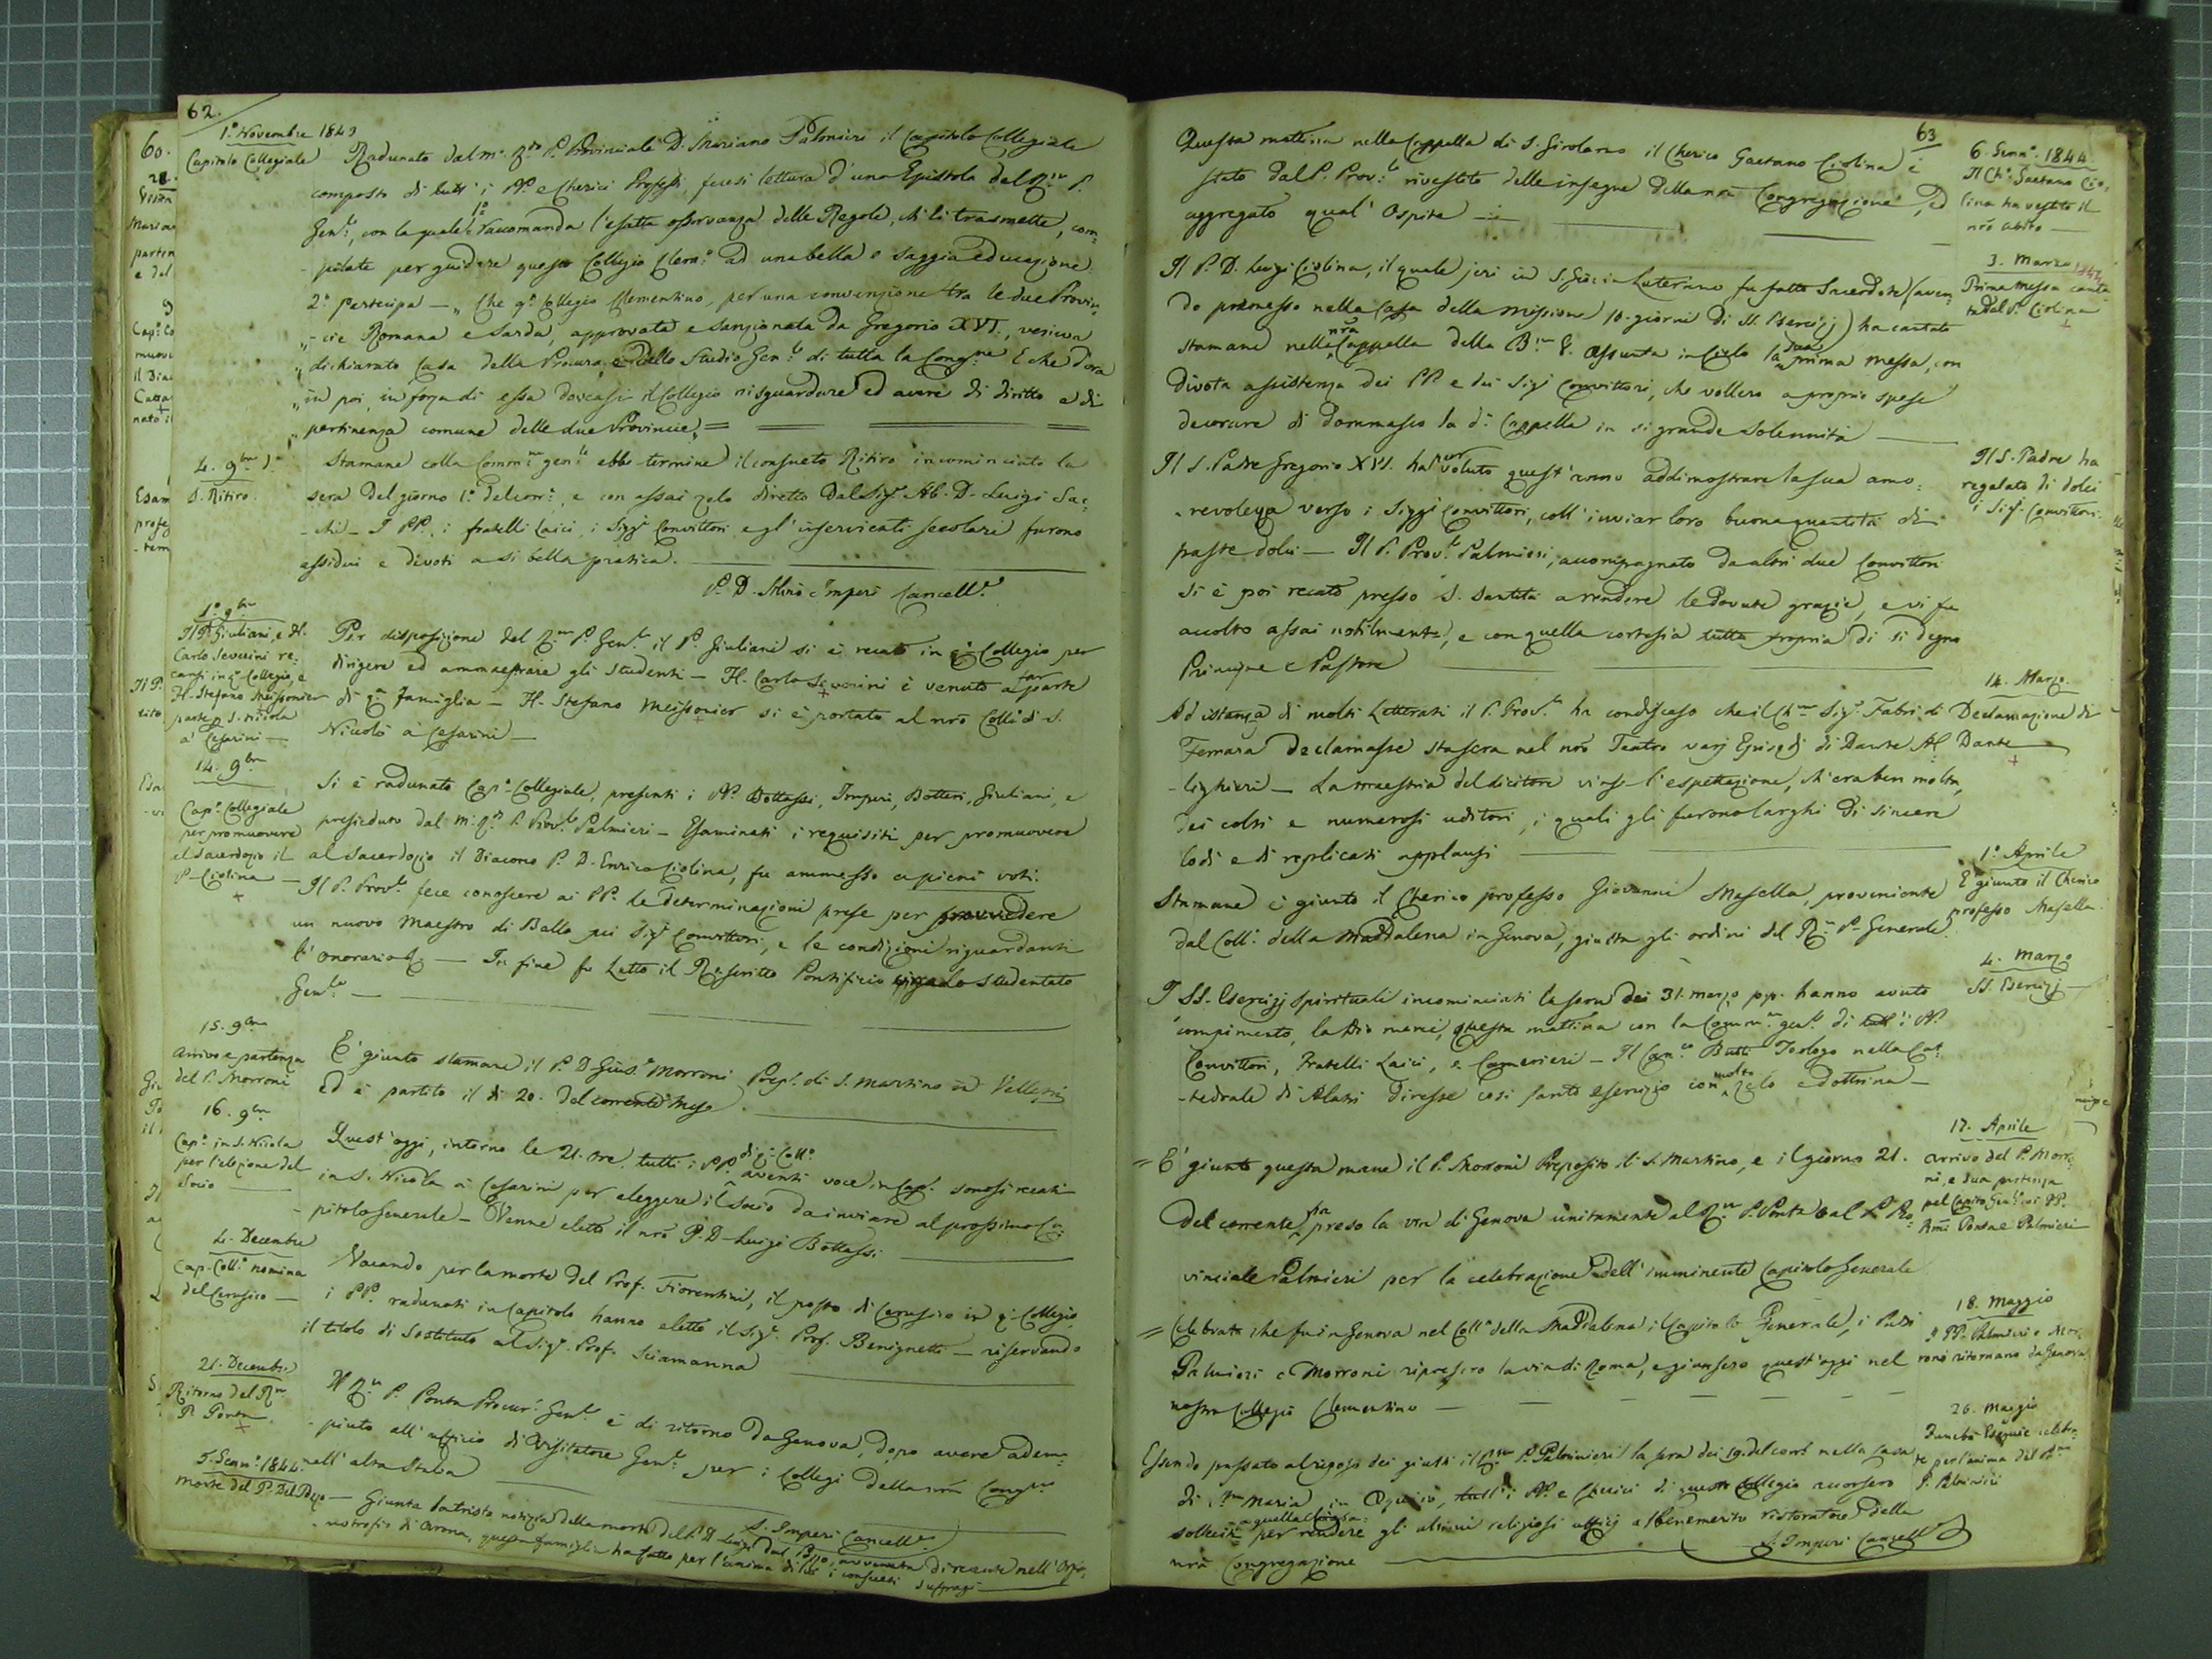 62.
1.° Novembre 1843
Capitolo Collegiale
Radunato dal m.° R.do P. Provinciale D. Mariano Palmieri il Capitolo Collegiale
composto di tutti i PP. e Cherici Professi, fecesi lettura d'una Epistola del R.mo P.
Gen.le, con la quale 1.° raccomanda l'esatta osservanza delle Regole, ch'ei trasmette, com=
-pilate per guidare questo Collegio Clem.° ad una bella e saggia educazione.
2.° Partecipa — „ Che q.° Collegio Clementino, per una convenzione tra le due Provin=
„-cie Romana e Sarda, approvata e sanzionata da Gregorio XVI., veniva
„ dichiarato Casa della Procura, e dello Studio Gen.le di tutta la Cong.ne E che d'ora
„ in poi, in forza di essa doveasi il Collegio risguardare ed avere di diritto e di
„ pertinenza comune delle due Provincie „ =
4. 9bre
S. Ritiro.
Stamane colla Comm.ne gen.le ebbe termine il consueto Ritiro incominciato la
sera del giorno 1.° del corr.e, e con assai zelo diretto dal Sig.r Ab. D. Luigi Sac=
-chi — I PP., i fratelli Laici, i Sigg.i Convittori e gl'inservienti secolari furono
assidui e divoti a si bella pratica.
P. D. Silvio Imperi Cancell.e
1.° 9bre
Il P. Giuliani, e H.
Carlo Severini re=
cansi in q.° Collegio, e
H. Stefano Meissonier
parte p S. Nicola
a' Cesarini —
Per disposizione del R.mo P. Gen.le il P. Giuliani si è recato in q.° Collegio per
dirigere ed ammaestrare gli studenti — H. Carlo Severini è venuto a far parte
di q.a famiglia — H. Stefano Meissonier si è portato al nrō Coll.° di S.
Nicolò a' Cesarini —
14. 9bre
Cap.° Collegiale
per promuovere
al Sacerdozio il
P. Ciolina —
Si è radunato Cap.° Collegiale, presenti i PP. Bottassi, Imperi, Botteri, Giuliani, e
presieduto dal m.° R.do P. Prov.le Palmieri — Esaminati i requisiti per promuovere
al Sacerdozio il Diacono P. D. Enrico Ciolina, fu ammesso a pieni voti.
— Il P. Prov.le fece conoscere ai PP. le determinazioni prese per provvedere
un nuovo Maestro di Ballo pei Sig.i Convittori, e le condizioni riguardanti
l'onorario — In fine fu Letto il Rescritto Pontificio Studentato
Gen.le —
15. 9bre
Arrivo e partenza
del P. Morroni
È giunto stamane il P. D. Gius.e Morroni Prep.° di S. Martino in Velletri
ed è partito il di 20. del corrente Mese.
16. 9bre
Cap.° in S. Nicola
per l'elezione del
Socio —
Quest'oggi, intorno le 21. ore, tutti i PP. di q.° Coll.° aventi voce in Cap.° sonosi recati
in S. Nicola a' Cesarini per eleggere il Socio da inviare al prossimo Ca=
-pitolo Generale — Venne eletto il nrō P. D. Luigi Bottassi.
4. Decembre
Cap. Coll.e nomina
del Cerusico —
Vacando per la morte del Prof. Fiorentini, il posto di Cerusico in q.° Collegio,
i PP. radunati in Capitolo hanno eletto il Sig.r Prof. Benignetti — riservando
il titolo di Sostituto al Sig.r Prof. Sciamanna
21. Decembre
Ritorno del R.mo
P. Ponta
Il R.mo P. Ponta Procur.e Gen.le è di ritorno da Genova, dopo avere adem=
-piuto all'ufficio di Visitatore Gen.le per i Collegi della nrā Cong.ne
nell'alta Italia
S. Imperi Cancell.e
5. Genn.° 1844.
Morte del P. Del Pozzo
— Giunta la trista notizia della morte del P. D. Luigi Dal Pozzo, avvenuta di recente nell'Orfa=
-notrofio di Arona, questa famiglia ha fatto per l'anima di lui i consueti suffragi
63
Questa mattina nella Cappella di S. Girolamo il Cherico Gaetano Ciolina è
stato dal P. Prov.le rivestito delle insegne della nrā Congregazione, ed
aggregato qual' Ospite —
6. Genn.° 1844.
Il Ch.° Gaetano Cio=
lina ha vestito il
nrō abito —
Il P. D. Luigi Ciolina, il quale jeri in S. Gio: in Laterano fu fatto Sacerdote (aven=
do premesso nella Casa della Missione 10. giorni di SS. Esercizj) ha cantato
stamane nella nrā Cappella della B.ma V. Assunta in Cielo la sua prima Messa, con
divota assistenza dei PP. e dei Sigi Convittori, che vollero a proprie spese
decorare di dommasco la d.a Cappella in si grande solennità —
3. Marzo 1844
Prima Messa canta=
ta dal P. Ciolina
Il S. Padre Gregorio XVI. ha voluto quest'anno addimostrare la sua amo=
-revolezza verso i Siggi Convittori, coll'inviar loro buona quantità di
paste dolci — Il P. Prov.le Palmieri, accompagnato da altri due Convittori
si è poi recato presso S. Santità a rendere le dovute grazie, e vi fu
accolto assai nobilmente, e con quella cortesia tutta propria di si degno
Principe e Pastore
Il S. Padre ha
regalato di dolci
i Sig.i Convittori.
Ad istanza di molti Letterati il P. Prov.le ha condisceso che il Ch.mo Sig.r Fabri di
Ferrara declamasse stasera nel nrō Teatro varj Episodj di Dante Al=
-lighieri — La maestria del dicitore vinse l'espettazione, ch'era ben molta,
dei colti e numerosi uditori, i quali gli furono larghi di sincere
lodi e di replicati applausi
14. Marzo.
Declamazione di
Dante
Stamane è giunto il Cherico professo Giovanni Masella, proveniente
dal Coll.° della Maddalena in Genova, giusta gli ordini del R.mo P. Generale.
1.° Aprile
È giunto il Cherico
professo Masella.
I SS. Esercizj Spirituali incominciati la sera dei 31. marzo p.p. hanno avuto
compimento, la Dio mercè, questa mattina con la Comm.ne gen.le di tutti i PP.
Convittori, Fratelli Laici, e Camerieri — Il Can.co Butti Teologo nella Cat=
-tedrale di Alatri diresse così santo esercizio con molto zelo e dottrina —
4. Marzo
SS. Esercizj —
= È giunto questa mane il P. Morroni Preposito di S. Martino, e il giorno 21.
del corrente ha preso la via di Genova unitamente al R.mo P. Ponta e al P. Pro=
vinciale Palmieri per la celebrazione dell'imminente Capitolo Generale
17. Aprile
Arrivo del P. Morro=
ni, e sua partenza
pel Capito. Gen.le coi PP.
Rmi Ponta e Palmieri
= Celebrato che fu in Genova nel Coll.° della Maddalena il Capitolo Generale, i Padri
Palmieri e Morroni ripresero la via di Roma, e giunsero quest'oggi nel
nostro Collegio Clementino —
18. Maggio
I PP. Palmieri e Mor=
roni ritornano da Genova
Essendo passato al riposo dei giusti il R.mo P. Palmieri la sera dei 19. del corr.e nella Casa
di S.ta Maria in Aquiro, tutti i PP. e Cherici di questo Collegio accorsero
solleciti a quella Chiesa per rendere gli ultimi religiosi uffizj al benemerito ristoratore della
nrā Congregazione
S. Imperi Cancell.e
26. Maggio
Funebri Esequie celebra=
te per l'anima del R.mo
P. Palmieri